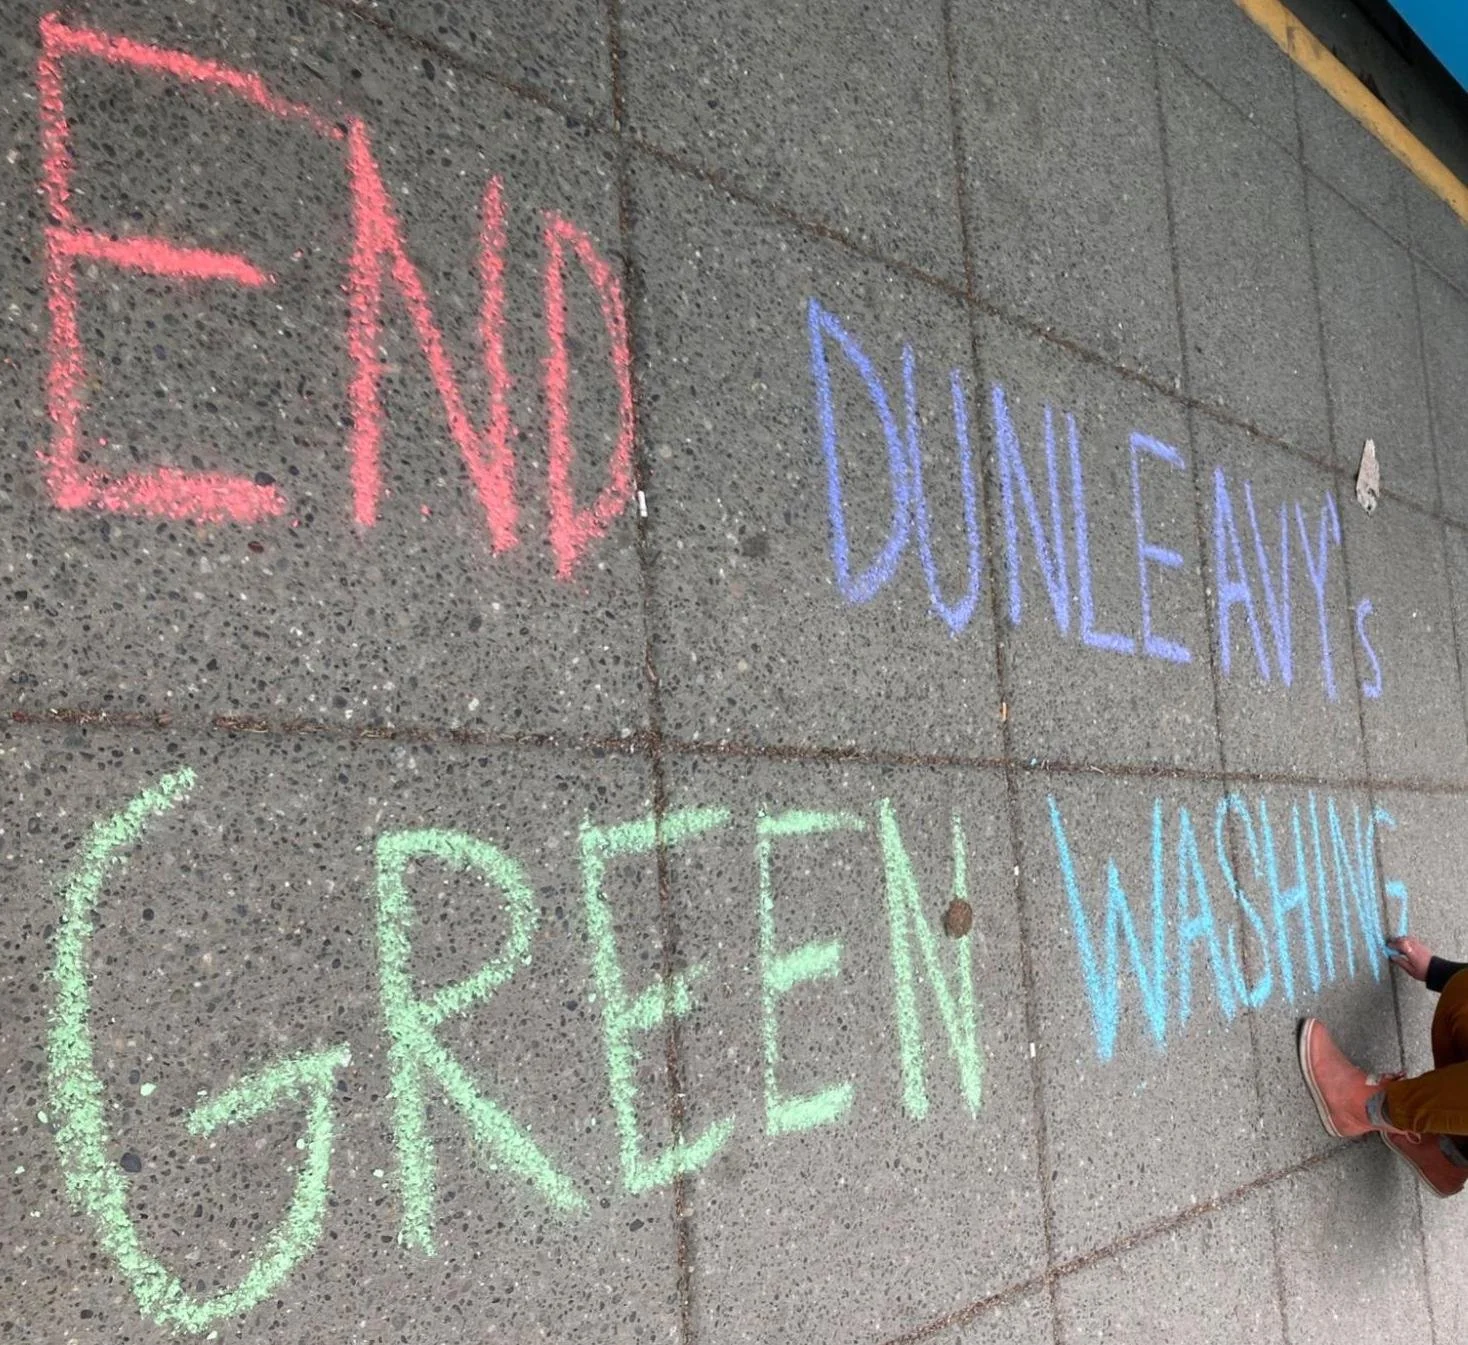 END DUNLEAVY's
GREEN WASHING